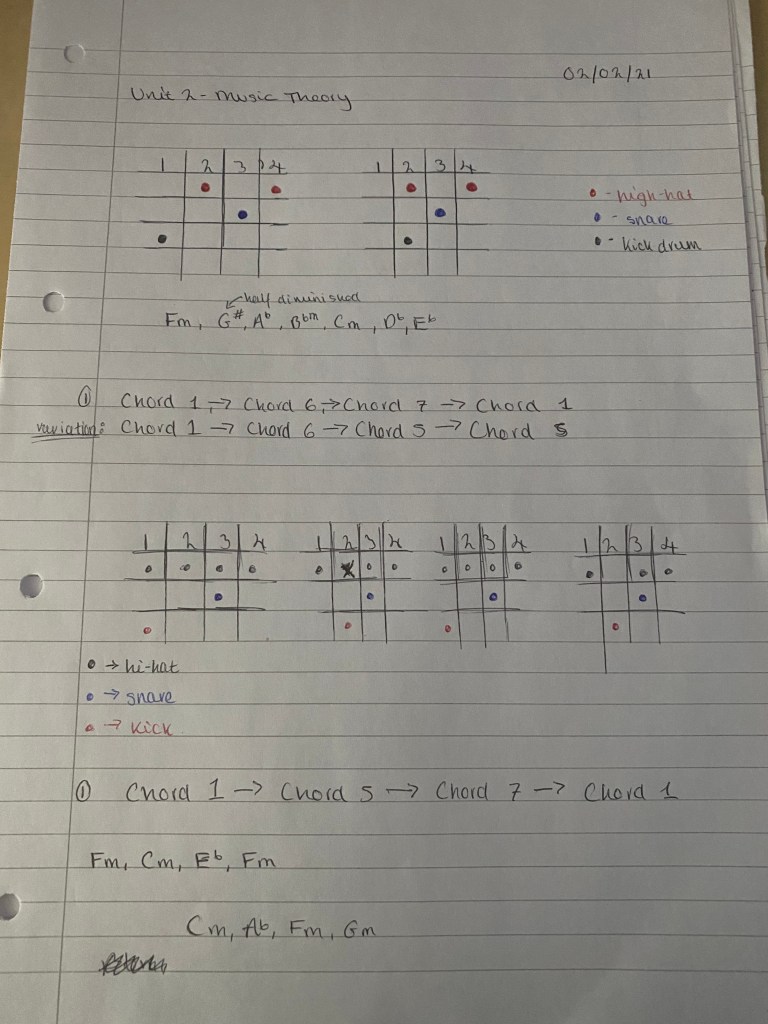 02/02/21
Unit 2 - Music Theory
1 2 3 4 1 2 3 4
- high-hat
- snare
- kick drum
half diminished
Fm, G#, Ab, Bbm, Cm, Db, Eb
① Chord 1 → Chord 6 → Chord 7 → Chord 1
variation: Chord 1 → Chord 6 → Chord 5 → Chord 5
1 2 3 4 1 2 3 4 1 2 3 4 1 2 3 4
→ hi-hat
→ snare
→ kick
① Chord 1 → Chord 5 → Chord 7 → Chord 1
Fm, Cm, Eb, Fm
Cm, Ab, Fm, Gm